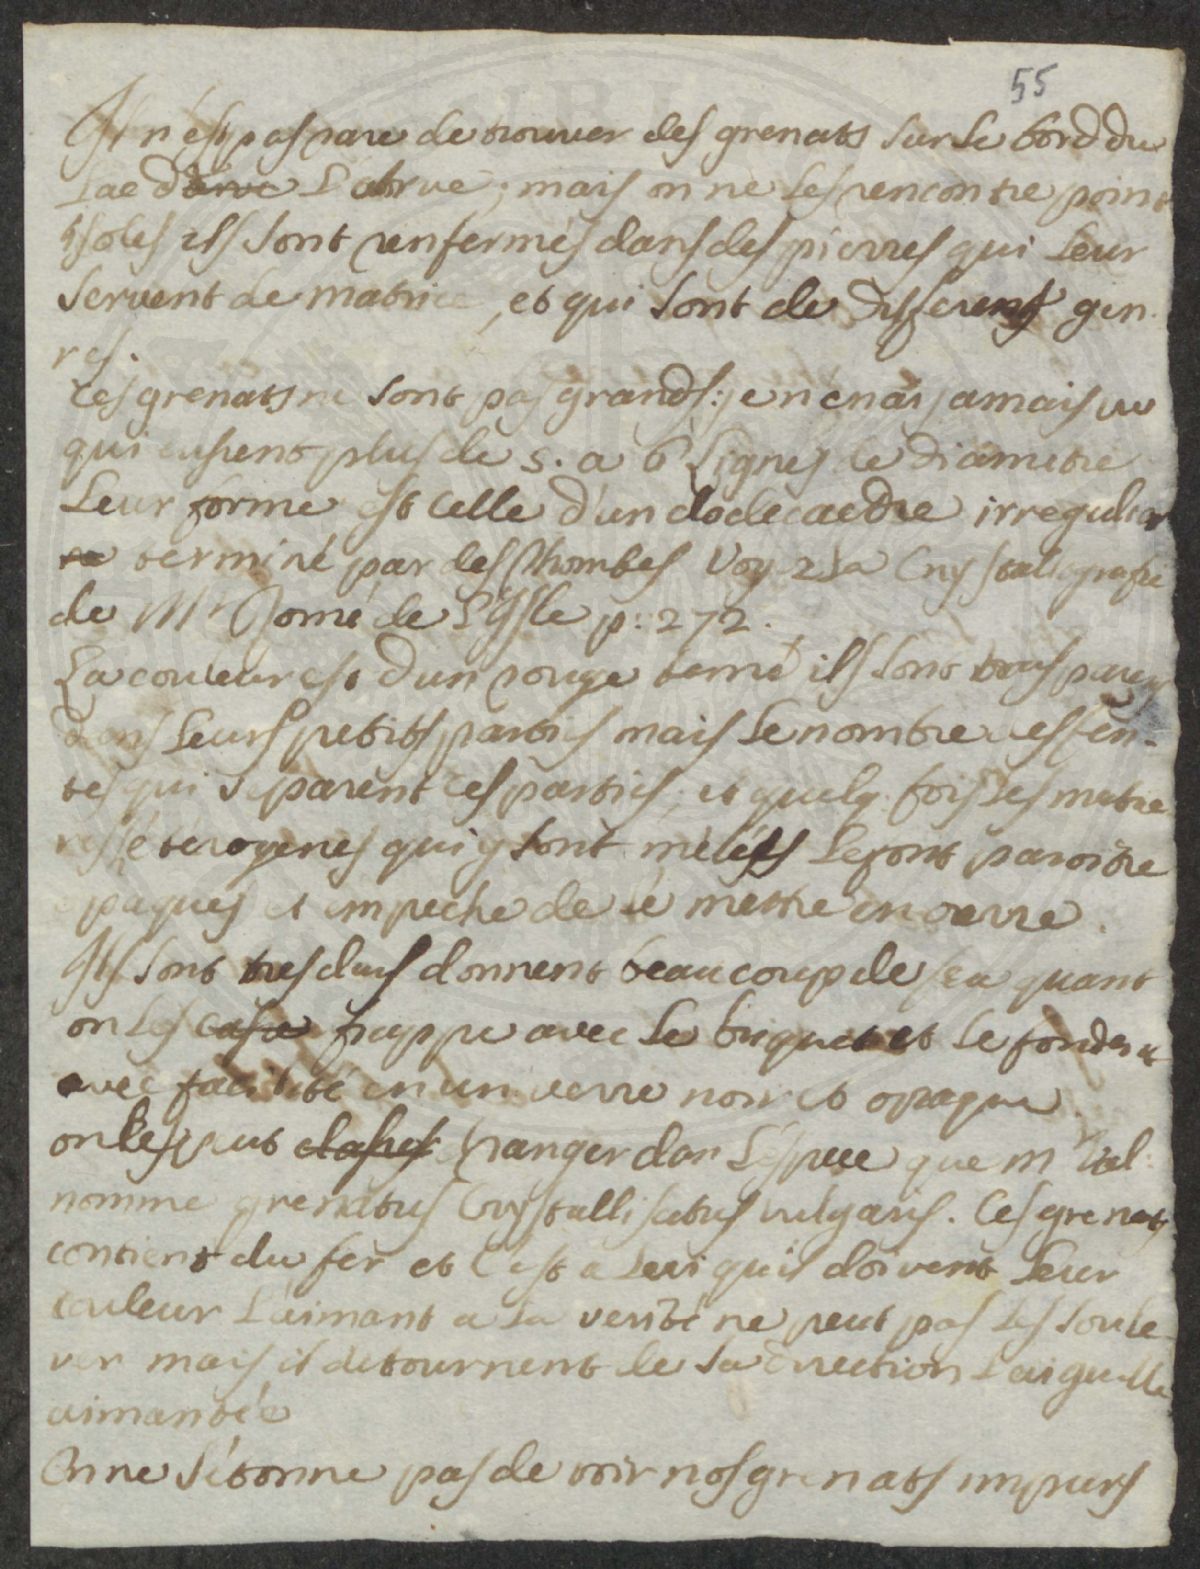 55
Il n'est pas rare de trouver des grenats sur le bord du
Lac mais on ne les rencontre point
isoles ils sont renfermés dans des pierres qui leur
servent de matrice, et qui sont de differents gen-
res.
Ces grenats ne sont pas grands: je n'en ai jamais vu
qui eussent plus de 5. a 6 lignes de diametre
Leur forme est celle d'un dodecaedre irregulier
terminé par des Rhombes Voyez la Crystallografie
de Mr Romé de L'Isle p: 272.
La couleur est d'un rouge terni ils sont transparen
dans leurs petits parties mais le nombre des fen-
tes qui separent ces parties, et quelq. fois les matie
res eterogenes qui y sont melées le font paroitre
opaques et empeche de le mettre en oevre.
Ils sont tres durs donnent beaucoup de feu quant
on les frappe avec le briquet et se fondent
avec facilité en un verre noir et opaque.
on les peut ranger dan l'espece que Mr Val:
nomme grenatus Crystallisatus vulgaris. Ces grenats
contient du fer et c'est a lui qu'il doivent leur
couleur L'aimant a la verité ne peut pas les soule
ver mais il detournent de sa direction l'aiguille
aimantée
On ne s'étonne pas de voir nos grenats impurs